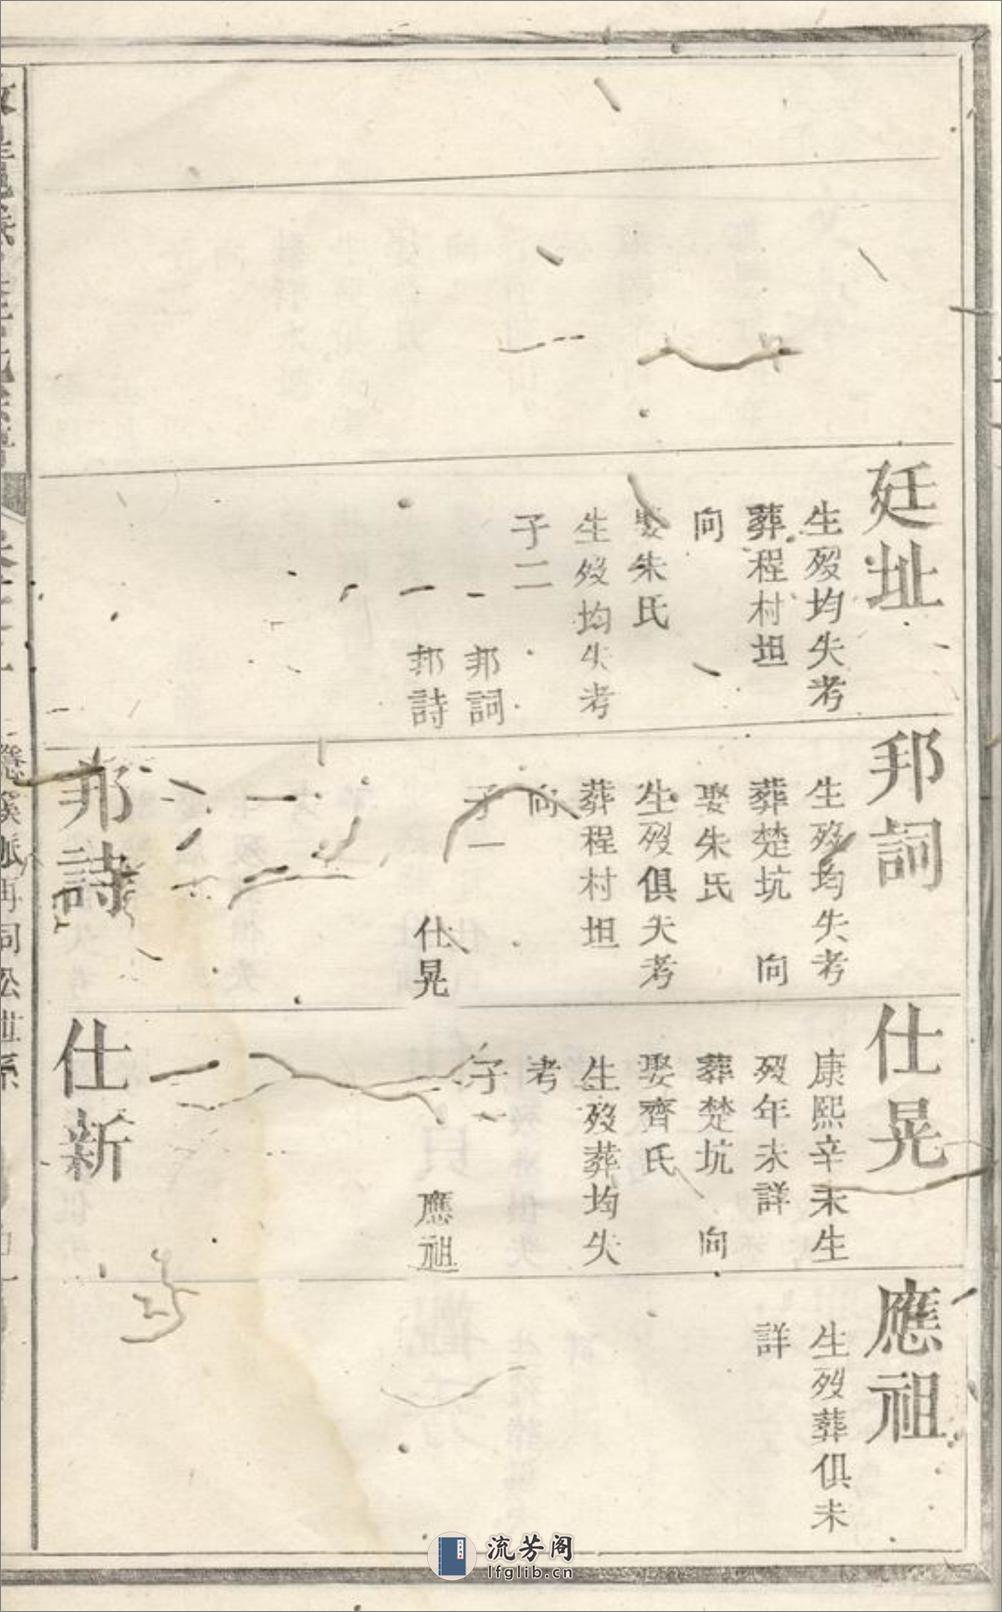 廷址
生歿均失考
葬程村坦
向
娶朱氏
生歿均失考
子二
邦詞
邦詩
邦詞
生歿均失考
葬楚坑 向
娶朱氏
生歿俱失考
葬程村坦
向
子一
仕晃
邦詩
仕晃
康熙辛未生
歿年未詳
葬楚坑 向
娶齊氏
生歿葬均失
考
子
應祖
仕新
應祖
生歿葬俱未
詳
流芳阁
lfglib.cn